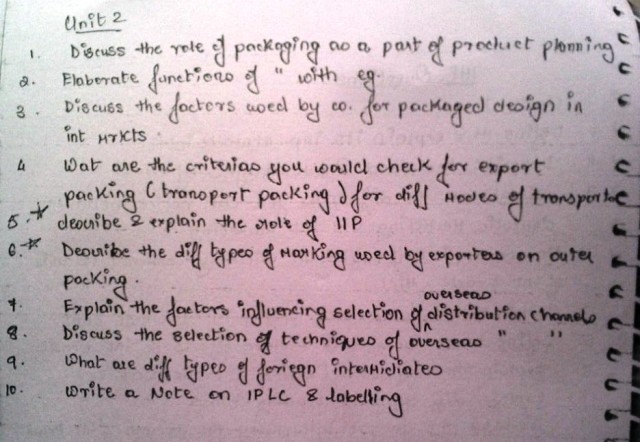 Unit 2
1. Discuss the role of packaging as a part of product planning
2. Elaborate functions of " with eg
3. Discuss the factors used by co. for packaged design in
int Mrkts.
4 Wat are the criterias you would check for export
packing (transport packing) for diff Modes of transport
5.* describe & explain the role of IIP
6.* Describe the diff types of Marking used by exporters on outer
packing.
7. Explain the factors influencing selection of overseas distribution channels
8. Discuss the selection of techniques of overseas " "
9. What are diff types of foriegn intermidiates
10. Write a Note on IPLC & labelling